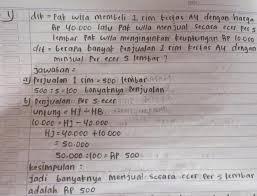 1) dit = Pak wila membeli 1 rim kertas A4 dengan harga
Rp 40.000 lalu Pak wila menjual secara ecer per 5
lembar Pak wila menginginkan keuntungan Rp 10.000
dit = berapa banyak Penjualan 1 rim kertas A4 dengan
menjual Per ecer 5 lembar ?
Jawaban =
a) Penjualan 1 rim = 500 lembar
500 : 5 = 100 banyaknya Penjualan
b) Penjualan Per 5 ecer
untung = HJ - HB
10.000 = HJ - 40.000
HJ = 40.000 + 10.000
= 50.000
50.000 : 100 = RP 500
kesimpulan :
Jadi banyaknya menjual secara ecer Per 5 lembar
adalah RP 500